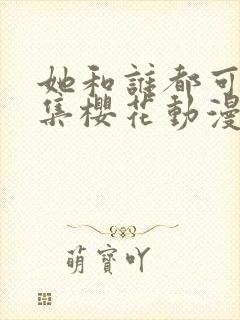 她和誰都可
集櫻花動漫
萌寶吖